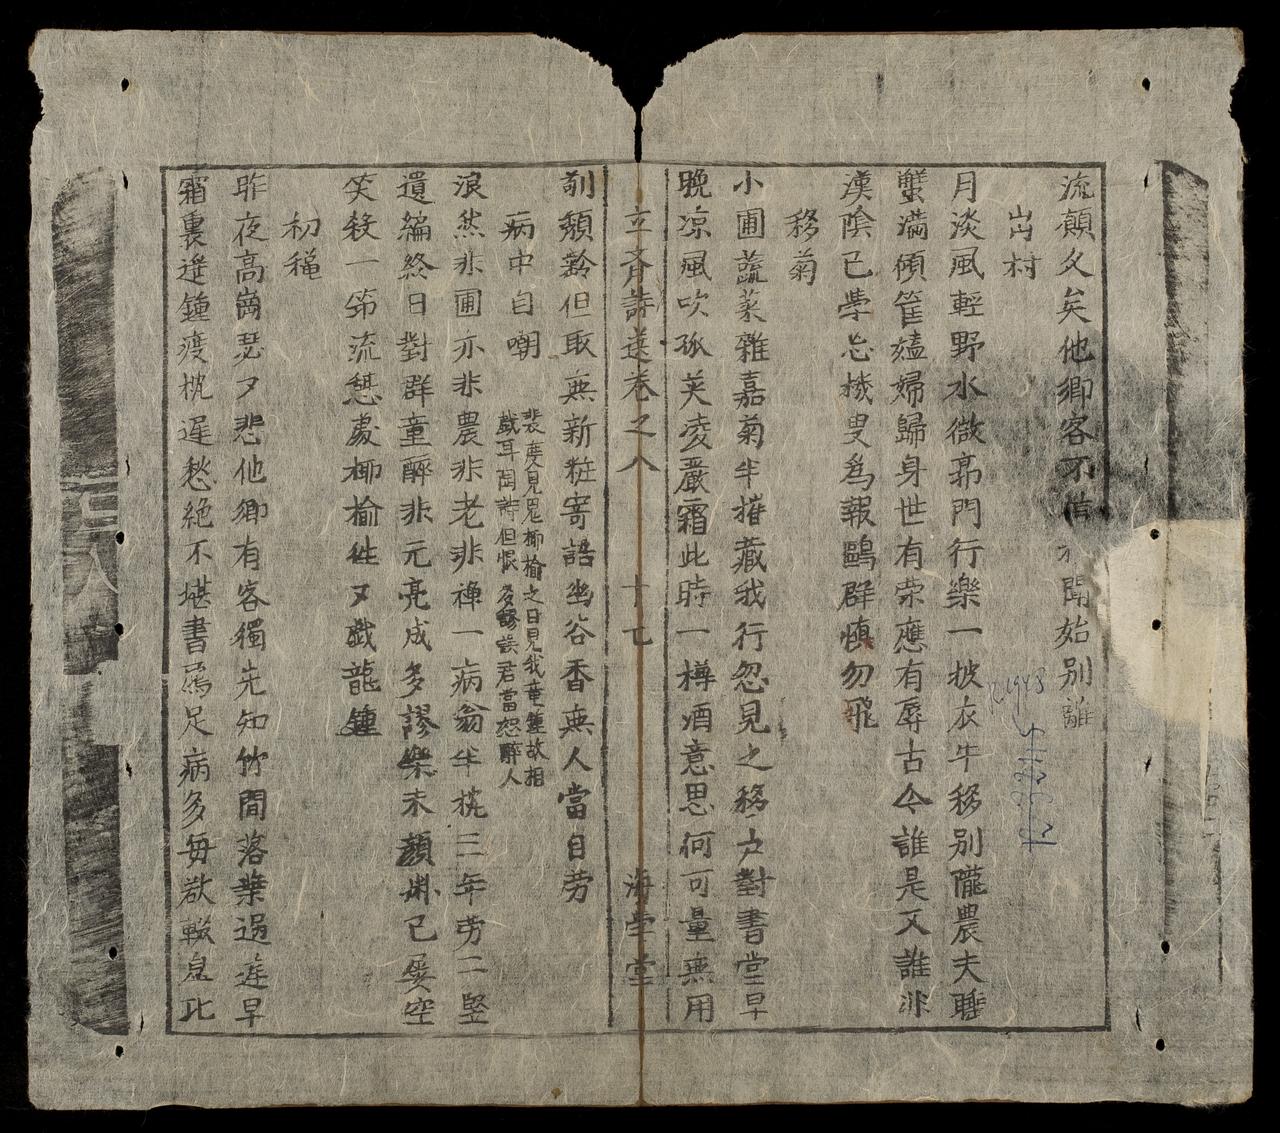 流顛久矣他卿客不信 有聞始别離
岢村
月淡風輕野水微荊門行樂一披衣牛移别隴農夫睡
蟹滿傾筐馌婦歸身世有荣應有辱古今誰是又誰非
漢陰已學忘機叟為報鷗群愼勿飛
移菊
小圃蔬菜雜嘉菊半摧藏我行忽見之移少對書堂早
晩凉風吹孤芙凌嚴霜此時一樽酒意思何可量無用
立斉詩選卷之八 十七 海学堂
制頽齡但取無新粧寄語幽谷香無人當自劳
病中自嘲
裴度見鬼揶揄之曰見我竜鍾故相
戱耳陶詩但恨多謬誤君當恕醉人
浪然非圃亦非農非老非禅一病翁半梳三年劳二竪
遺編終日對群童醉非元亮成多謬樂未顔淵已屡空
笑殺一笻流憩處揶揄性又戱龍鍾
初穐
昨夜高崗瑟々悲他卿有客獨先知竹間落葉過遲早
霜裏遥鍾疲枕遲愁絶不堪書鴈足病多每欲輟息比
R1948